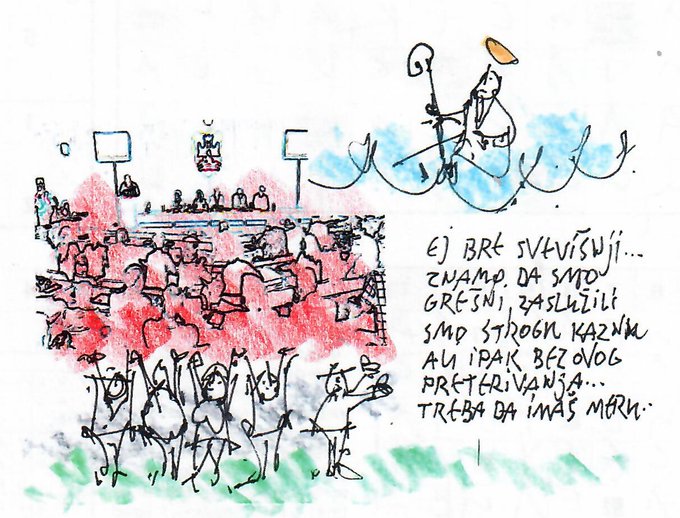 EJ BRE SVEVIŠNJI...
ZNAMO, DA SMO
GREŠNI, ZASLUŽILI
SMO STROGU KAZNU
ALI IPAK BEZ OVOG
PRETERIVANJA...
TREBA DA IMAŠ MERU..